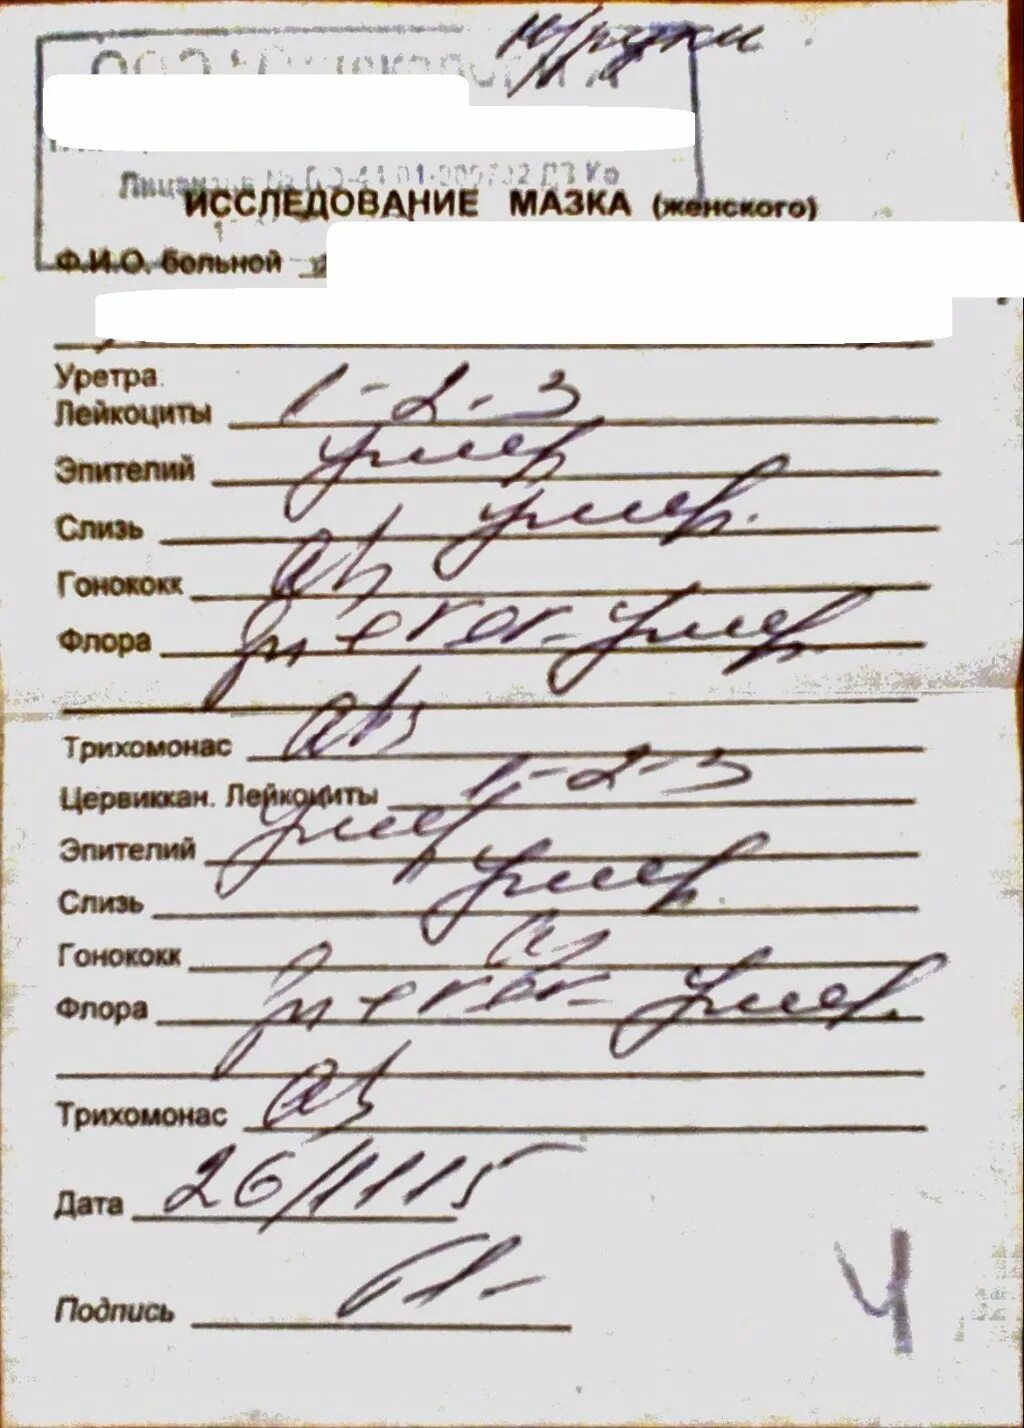 ООО
Лицензия № ЛО-41-01-000702 ДЗ Ко
ИССЛЕДОВАНИЕ МАЗКА (женского)
Ф.И.О. больной
Уретра.
Лейкоциты 1-2-3
Эпителий умер
Слизь умер.
Гонококк abs
Флора умер.
Трихомонас abs
Цервиккан. Лейкоциты 1-2-3
Эпителий умер
Слизь умер.
Гонококк
Флора умер.
Трихомонас abs
Дата 26/11 15
Подпись
Ч